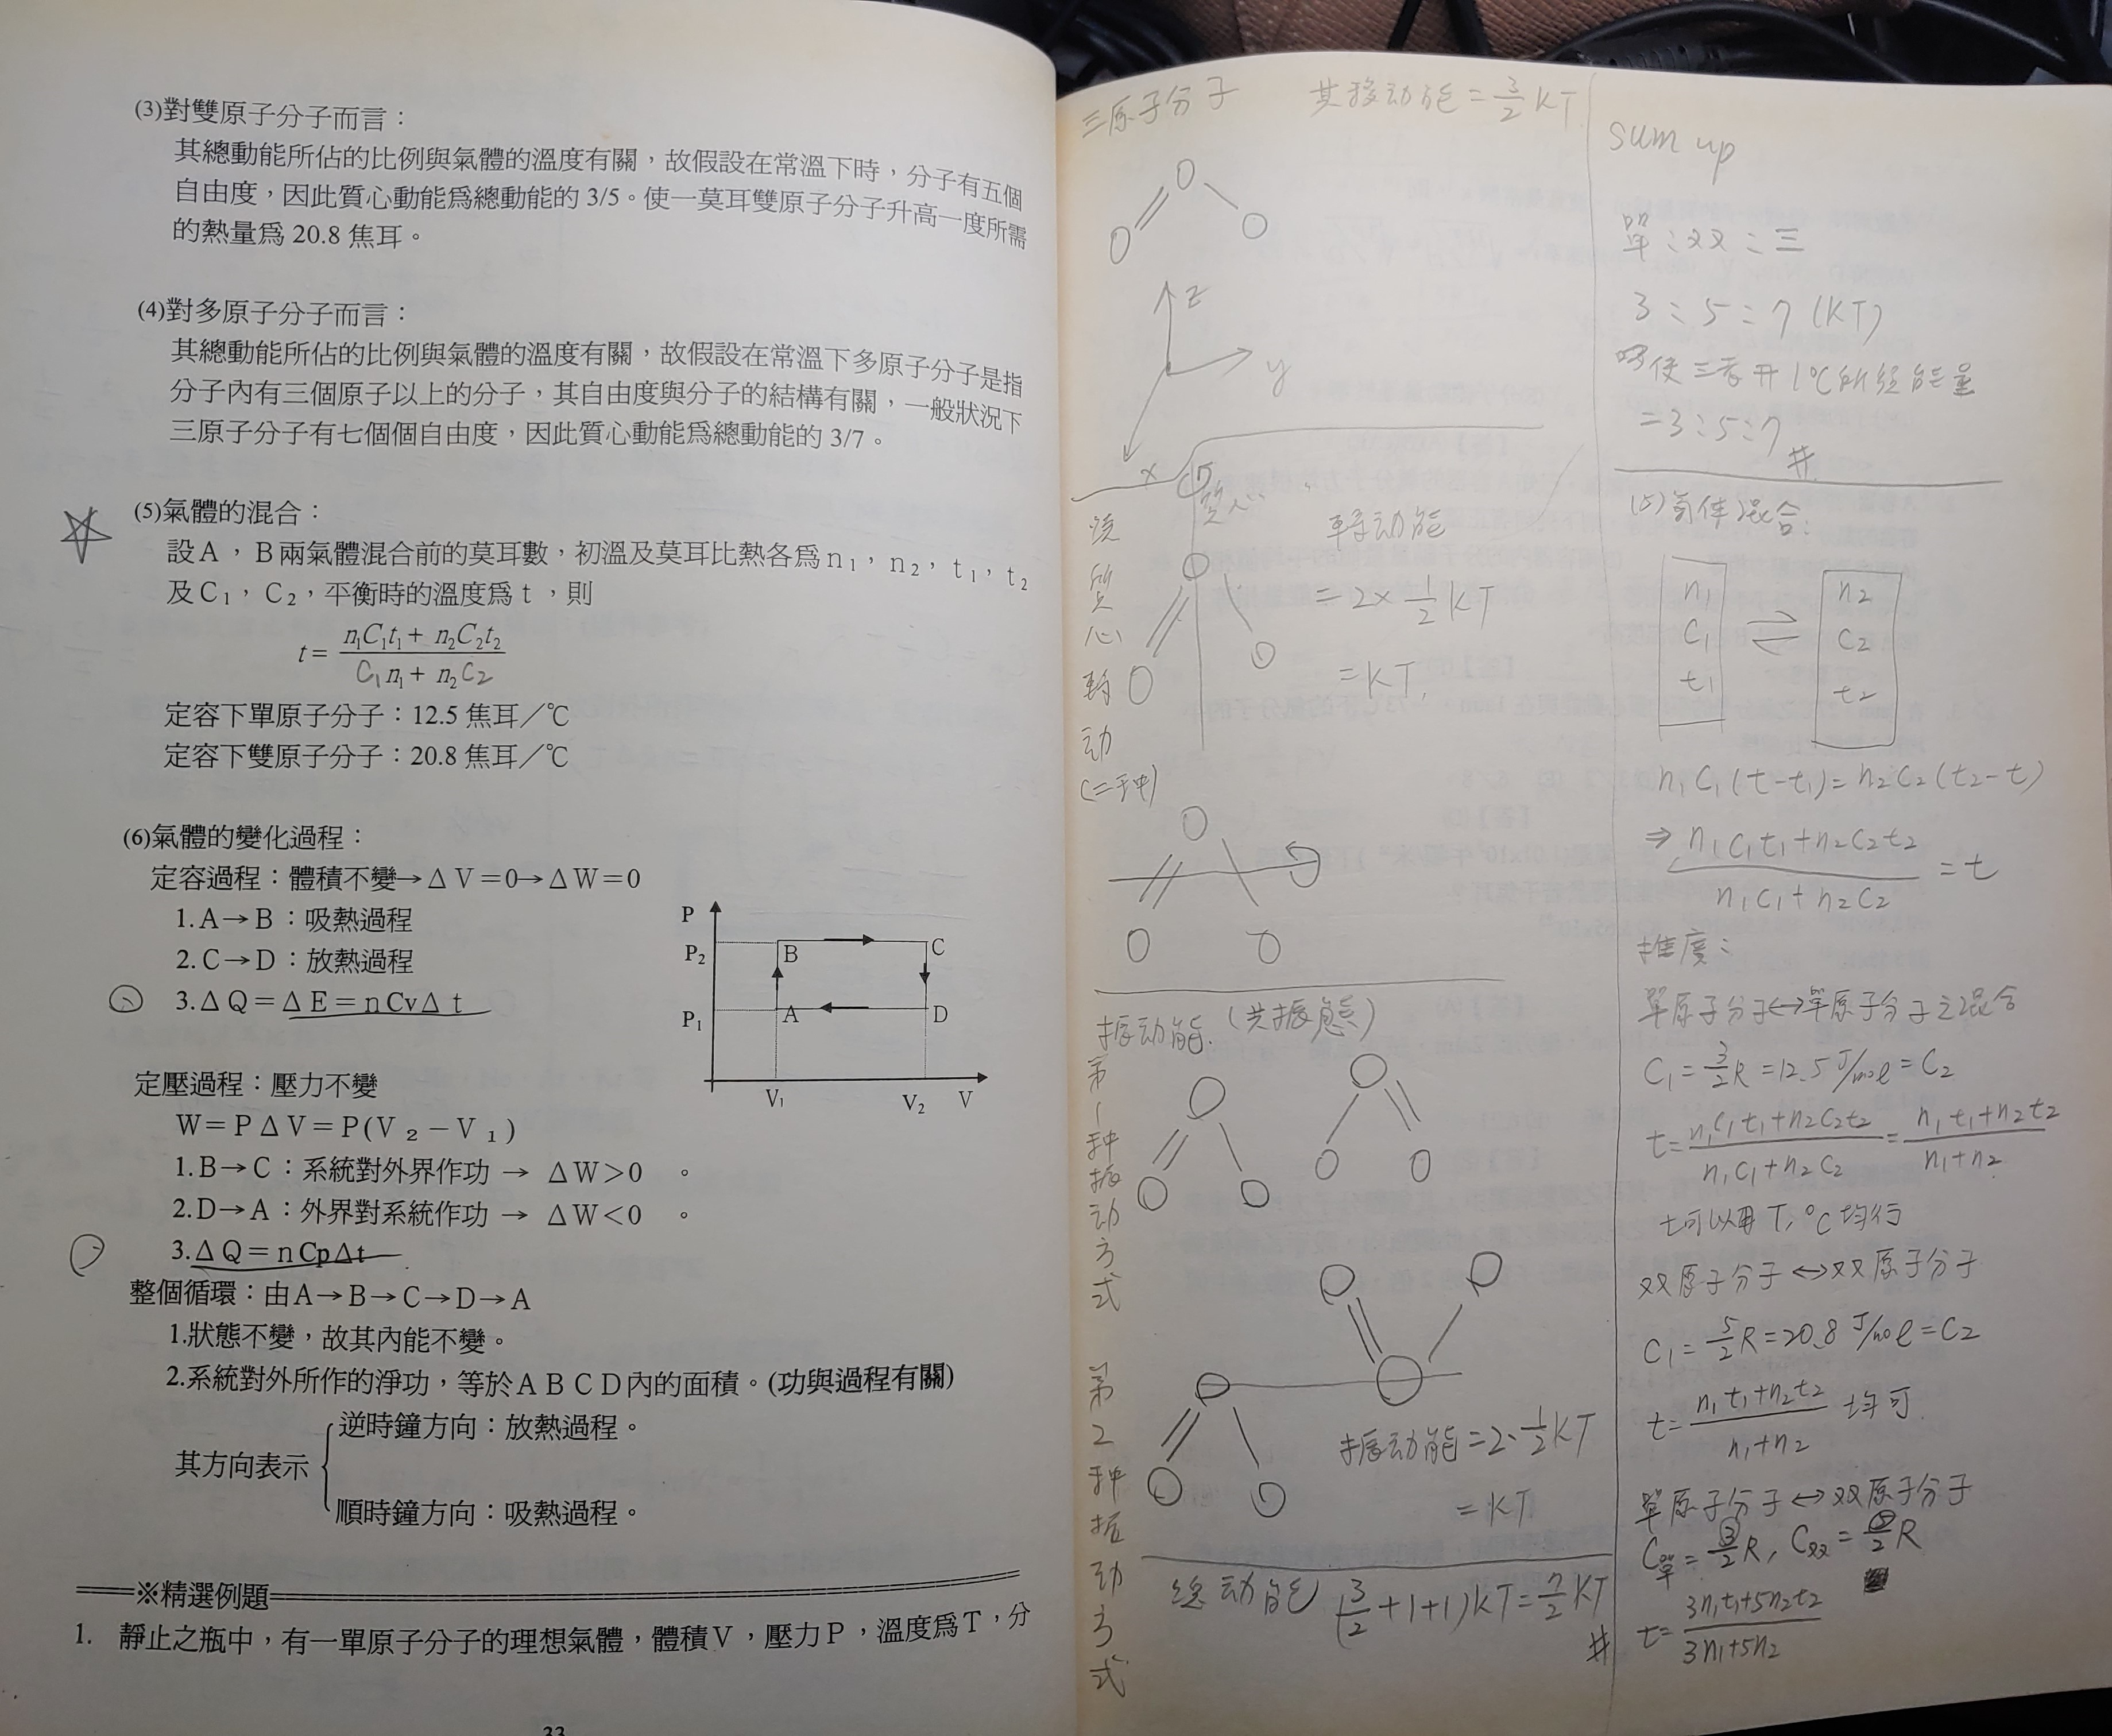 (3)對雙原子分子而言：
其總動能所佔的比例與氣體的溫度有關，故假設在常溫下時，分子有五個
自由度，因此質心動能爲總動能的 3/5。使一莫耳雙原子分子升高一度所需
的熱量爲 20.8 焦耳。
(4)對多原子分子而言：
其總動能所佔的比例與氣體的溫度有關，故假設在常溫下多原子分子是指
分子內有三個原子以上的分子，其自由度與分子的結構有關，一般狀況下
三原子分子有七個個自由度，因此質心動能爲總動能的 3/7。
(5)氣體的混合：
設A，B兩氣體混合前的莫耳數，初溫及莫耳比熱各爲n₁，n₂，t₁，t₂
及C₁，C₂，平衡時的溫度爲t，則
t= (n₁C₁t₁+ n₂C₂t₂)/(C₁n₁+ n₂C₂)
定容下單原子分子：12.5 焦耳／℃
定容下雙原子分子：20.8 焦耳／℃
(6)氣體的變化過程：
定容過程：體積不變→ΔV=0→ΔW=0
1.A→B：吸熱過程
2.C→D：放熱過程
3.ΔQ=ΔE=nCvΔt
P
P₂
B
C
P₁
A
D
V₁
V₂
V
定壓過程：壓力不變
W=PΔV=P(V₂−V₁)
1.B→C：系統對外界作功 → ΔW>0 。
2.D→A：外界對系統作功 → ΔW<0 。
3.ΔQ=nCpΔt
整個循環：由A→B→C→D→A
1.狀態不變，故其內能不變。
2.系統對外所作的淨功，等於ＡＢＣＤ內的面積。(功與過程有關)
逆時鐘方向：放熱過程。
其方向表示
順時鐘方向：吸熱過程。
※精選例題
1. 靜止之瓶中，有一單原子分子的理想氣體，體積V，壓力P，溫度爲T，分
33
三原子分子 其移动能=3/2 KT
z
y
x
質心
繞質心轉动(二种)
轉动能
=2×1/2 KT
=KT.
振动能.(共振態)
第1种振动方式
第2种振动方式
振动能=2·1/2 KT
=KT
總动能 (3/2+1+1)KT=7/2 KT #
sum up
單:双:三
3:5:7 (KT)
使三者升1℃所須能量
=3:5:7 #
(5)氣体混合:
n₁
C₁
t₁
n₂
C₂
t₂
n₁C₁(t-t₁)=n₂C₂(t₂-t)
⇒ (n₁C₁t₁+n₂C₂t₂)/(n₁C₁+n₂C₂) = t
推廣:
單原子分子↔單原子分子之混合
C₁=3/2 R=12.5 J/mol=C₂
t=(n₁C₁t₁+n₂C₂t₂)/(n₁C₁+n₂C₂)=(n₁t₁+n₂t₂)/(n₁+n₂)
t可以用T,℃均行
双原子分子↔双原子分子
C₁=5/2 R=20.8 J/mol=C₂
t=(n₁t₁+n₂t₂)/(n₁+n₂) 均可
單原子分子↔双原子分子
C單=3/2 R, C双=5/2 R
t=(3n₁t₁+5n₂t₂)/(3n₁+5n₂)